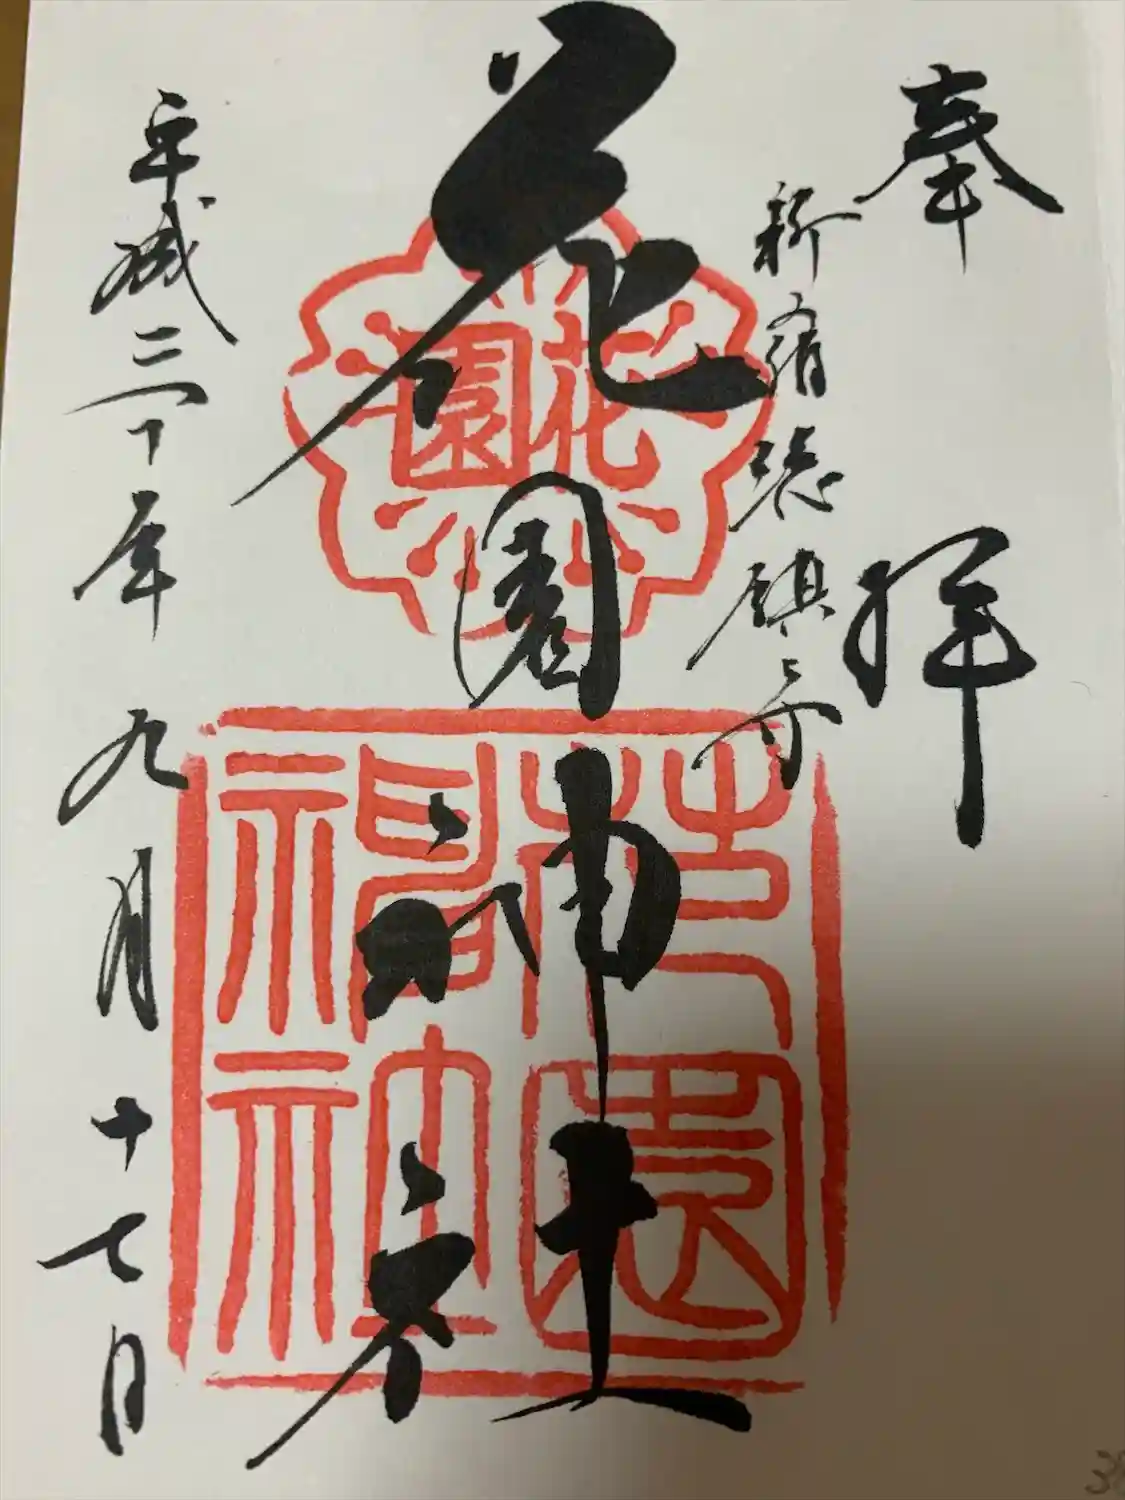 奉拝
新宿総鎮守
花園神社
花園
花園神社
平成三十年九月十七日
38